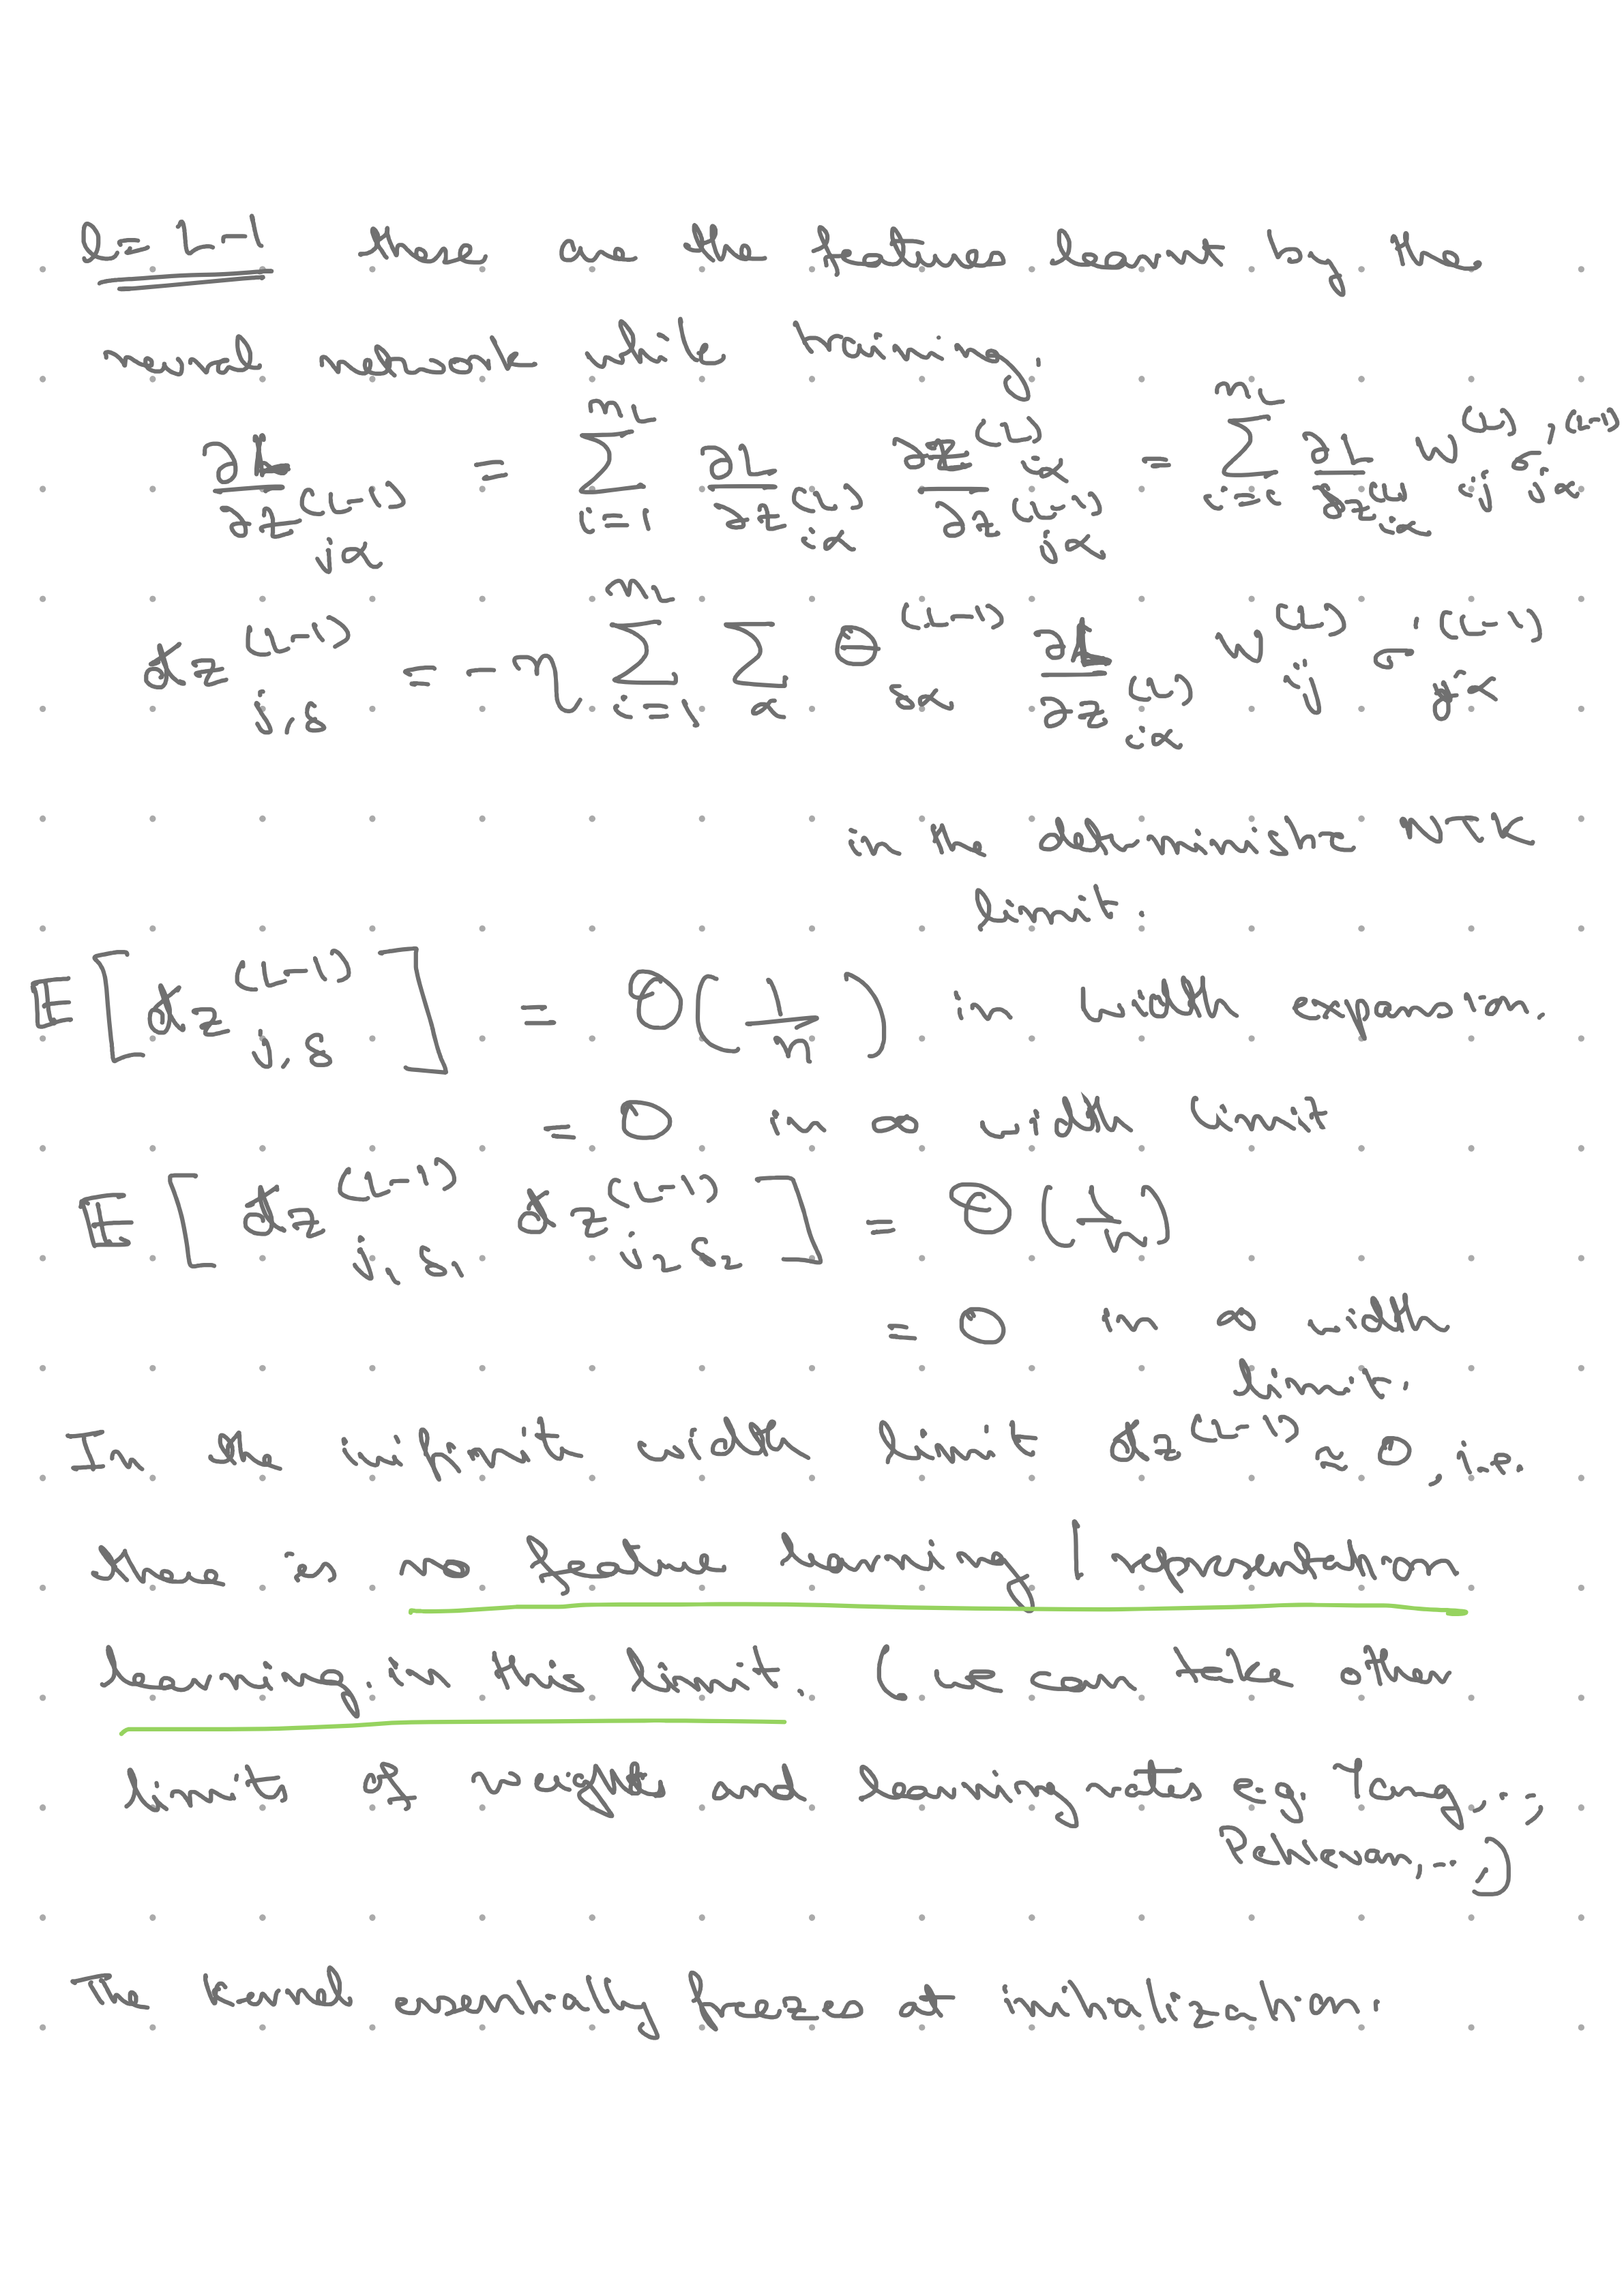 l = L-1 these are the features learnt by the
neural network while training.
∂L/∂z_{jα}^{(L-1)} = Σ_{i=1}^{n_L} ∂L/∂z_{iα}^{(L)} ∂z_{iα}^{(L)}/∂z_{jα}^{(L-1)} = Σ_{i=1}^{n_L} ∂L/∂z_{iα}^{(L)} W_{ij}^{(L)} σ'_{jα}^{(L-1)}
dz_{j,δ}^{(L-1)} = -η Σ_{i=1}^{n_L} Σ_α Θ_{δα}^{(L-1)} ∂L/∂z_{iα}^{(L)} W_{ij}^{(L)} σ'_{jα}^{(L-1)}
in the deterministic NTK
limit.
E[dz_{j,δ}^{(L-1)}] = O(1/n) in width expansion.
= 0 in ∞ width limit
E[dz_{j_1 δ_1}^{(L-1)} dz_{j_2 δ_2}^{(L-1)}] = O(1/n)
= 0 in ∞ width
limit.
In the infinite width limit dz^{(L-1)} ≈ 0, i.e.
there is no feature learning / representation
learning in this limit. (we can take other
limits of weights and learning rates e.g. Yang, ..,
Pehlevan, ...)
The kernel essentially freezes at initialization.